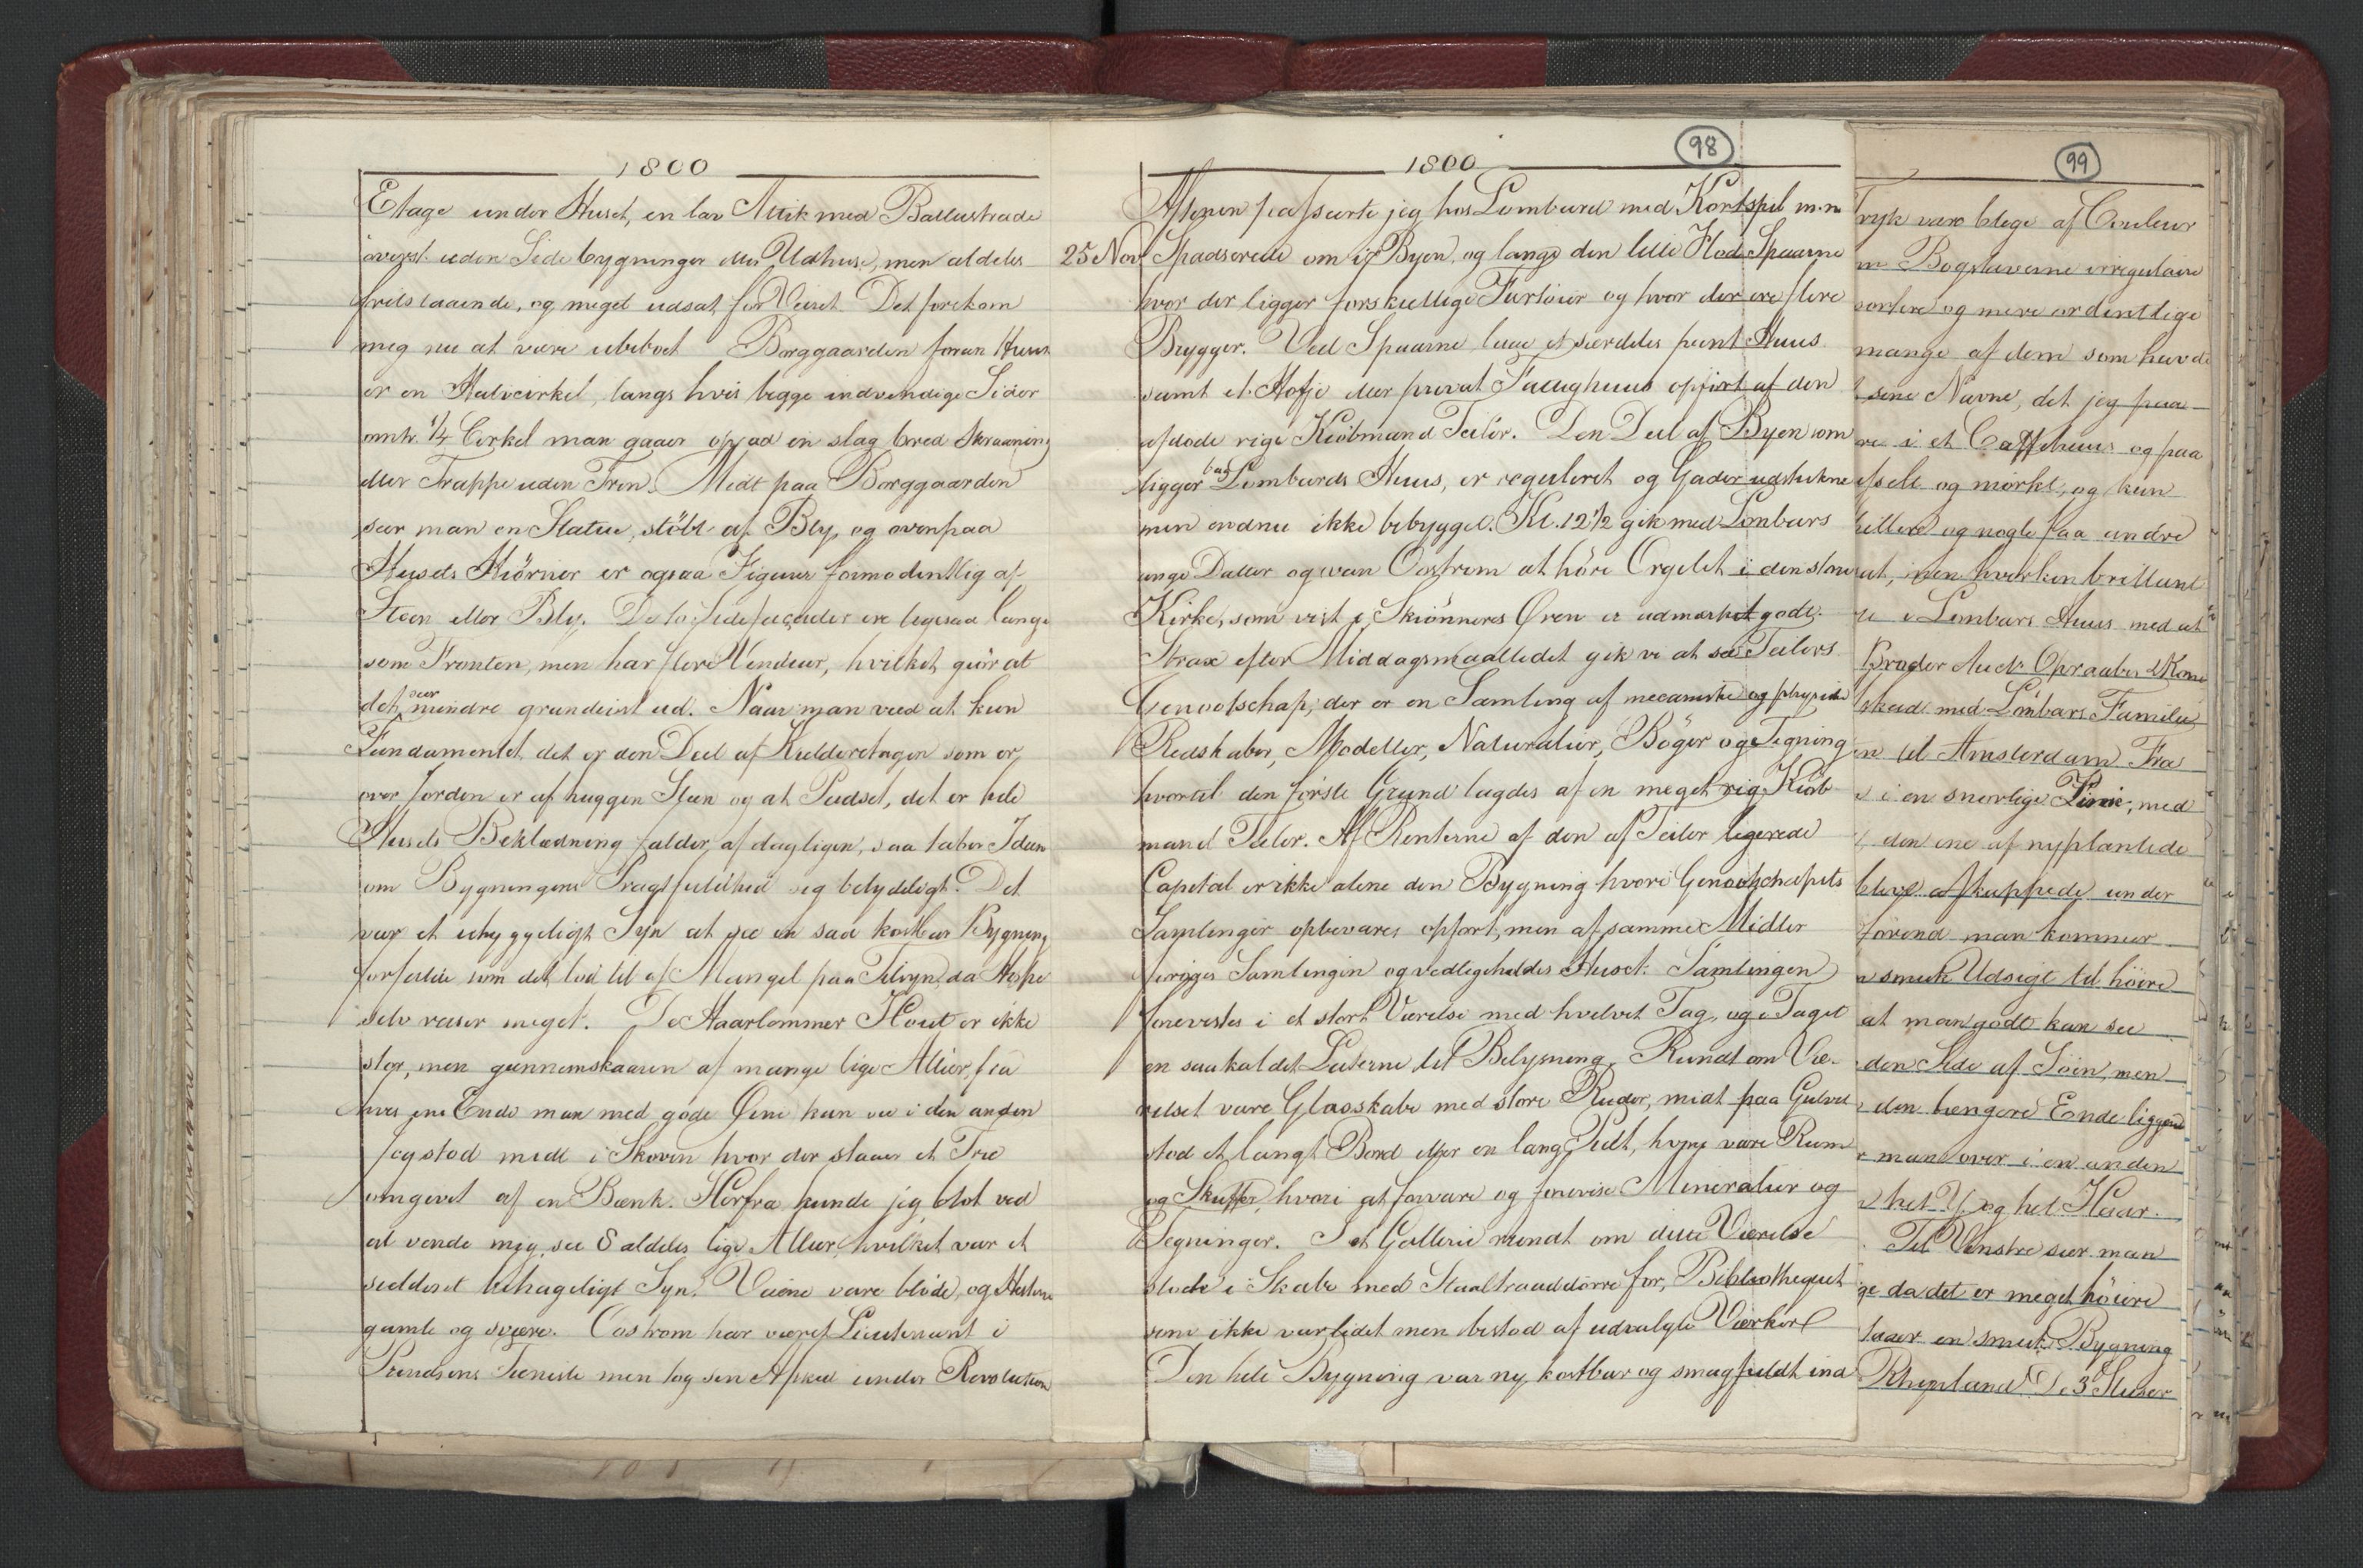 1800
Etage under Huset, en lav Attik med Ballustrade
øverst uden Sidebygninger eller Udhuse, men aldeles
fritstaaende, og meget udsat for Veiret. Det forekom
mig nu at være ubeboet Borggaarden foran Huus
er en Halvcirkel, langs hvis begge indvendige Sider
omtr. 1/4 Cirkel man gaaer op ad en slag bred Skraaning
eller Trappe uden Trin. Midt paa Borggaarden
seer man en Statue, støbt af Bly, og ovenpaa
Husets Hiörner er ogsaa Figurer formodentlig af
Steen eller Bly. De to Sidefaçader ere ligesaa lange
som Fronten, men har flere Vinduer, hvilket giör at
det seer mindre grandeust ud. Naar man veed at kun
Fundamentet, det er den Deel af Kielderetagen som er
over Jorden er af huggen Steen og at Pudset, det er hele
Husets Beklædning falder af dagligen, saa taber Ideen
om Bygningens Pragtfuldhed sig betydeligt. Det
var et uhyggeligt Syn at see en saa kostbar Bygning
forfalde som det lod til af Mangel paa Tilsyn, da Hope
selv reiser meget. De Haarlemmer Hout er ikke
stor, men giennemskaaren af mange lige Alleer, fra
hvis ene Ende man med gode Øine kan see i den anden
Jeg stod midt i Skoven hvor der staaer et Træ
omgivet af en Bænk. Herfra kunde jeg blot ved
at vende mig, see 8 aldeles lige Alleer, hvilket var et
sieldent behageligt Syn. Veiene vare bløde, og Hestene
gamle og svære. Oostrom har været Lieutenant i
Prindsens Tieneste men tog sin Afsked under Revolution
1800
98
Aftenen passerte jeg hos Lombard med Kortspil m.m
25 Nov Spadserede om i Byen, og langs den lille Flod Spaarne
hvor der ligger forskiellige Fartøier og hvor der ere flere
Brygger. Ved Spaarne laae et særdeles pent Huus
samt et Hofje eller privat Fattighuus opført af den
afdøde rige Kiöbmand Teiler. Den Deel af Byen som
ligger bag Lombards Huus, er reguleret og Gader udstukne
men endnu ikke bebygget. Kl. 12 1/2 gik med Lombars
unge Datter og van Oostrom at høre Orgelet i den store
Kirke, som vist i Skiønneres Øren er udmærket godt.
Strax efter Middagsmaaltidet gik vi at see Teilers
Genootschap, der er en Samling af mecaniske og physiske
Redskaber, Modeller, Naturalier, Bøger og Tegning
hvortil den første Grund lagdes af en meget rig Kiøb-
mand Teiler. Af Renterne af den af Teiler legerede
Capital er ikke alene den Bygning hvori Genootschapets
Samlinger opbevares opført, men af samme Midler
forøges Samlingen og vedligeholdes Huset. Samlingen
forevistes i et stort Værelse med hvelvet Tag, og i Taget
en saakaldet Lanterne til Belysning. Rundt om Væ-
relset vare Glasskabe med store Ruder, midt paa Gulvet
stod et langt Bord eller en lang Pult, hvori vare Rum
og Skuffer, hvori at forvare og forevise Mineralier og
Tegninger. I et Gallerie rundt om dette Værelse
stode i Skabe med Staaltraaddørre for, Bibliothequet
som ikke var lidet men bestod af udvalgte Værker
Den hele Bygning var ny, kostbar og smagfuldt ind
99
Tryk vare blege af Couleur
Bogstaverne irregulaire
sortere og mere ordentlige
mange af dem som havde
sine Navne, det jeg paa-
i et Caffehuus og paa
og mørkt, og kun
og nogle faa andre
men hverken brillant
i Lombars Huus med at
Broder
med Lombars Familie
til Amsterdam Fra
i en snorlige Linie, med
den ene af nyplantede
bleve afkappede under
førend man kommer
smuk Udsigt til høire
at man godt kan see
den Side af Søen, men
den længere Ende liggende
man over i en anden
het Y og het Haar.
Til Venstre seer man
da det er meget høiere
en smuk Bygning
Rhynland De 3 Sluser